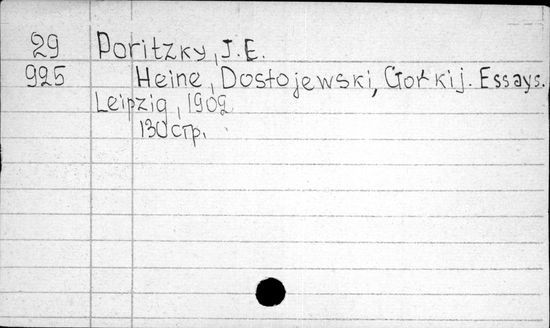 29 Poritzky, J.E.
925 Heine, Dostojewski, Gorkij. Essays.
Leipzig, 1902
130 стр.